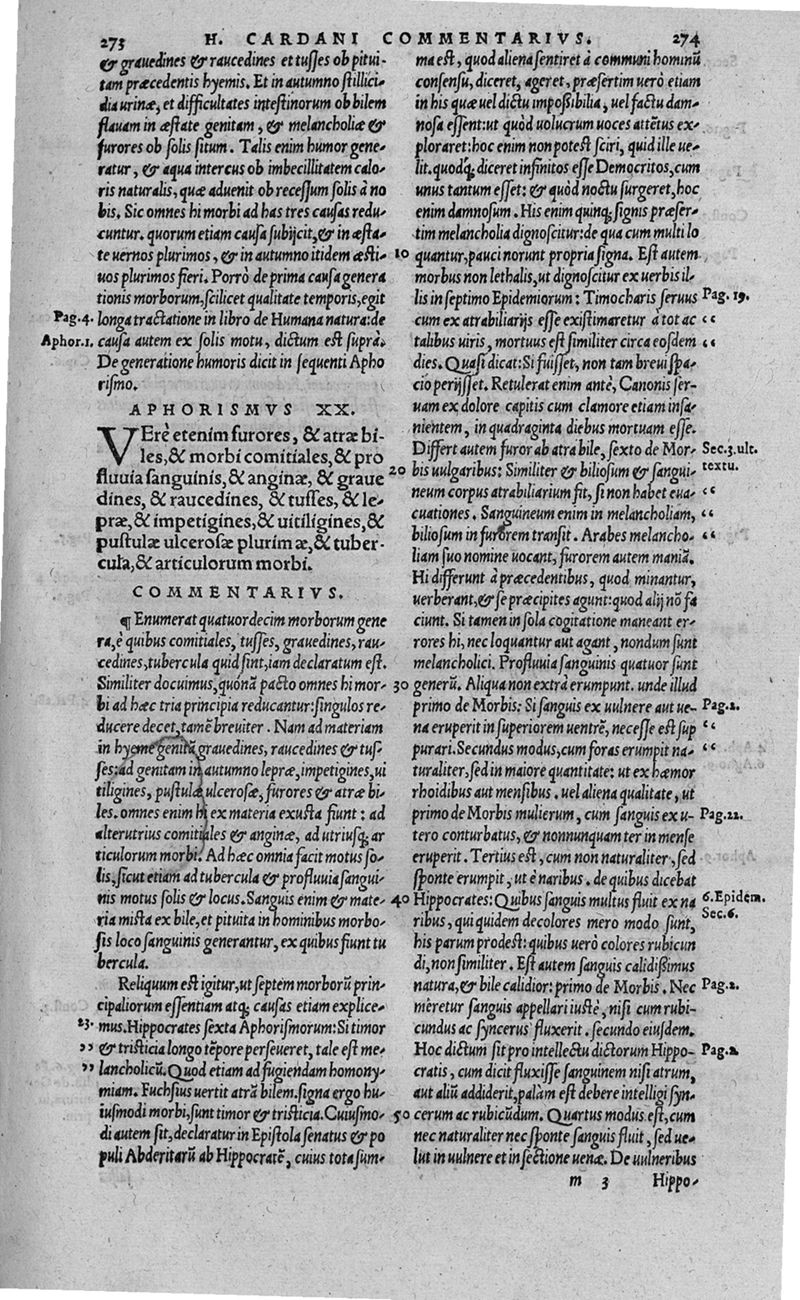 273 H. CARDANI COMMENTARIVS. 274
& grauedines & raucedines et tusses ob pitui-
tam præcedentis hyemis. Et in autumno stillici-
dia urinæ, et difficultates intestinorum ob bilem
flauam in æstate genitam, & melancholiæ &
furores ob solis situm. Talis enim humor gene-
ratur, & aqua intercus ob imbecillitatem calo-
ris naturalis, quæ aduenit ob recessum solis à no
bis. Sic omnes hi morbi ad has tres causas redu-
cuntur. quorum etiam causa subijcit, & in æsta-
te uernos plurimos, & in autumno itidem æsti-
uos plurimos fieri. Porrò de prima causa genera
tionis morborum, scilicet qualitate temporis, egit
Pag.4. longa tractatione in libro de Humana natura: de
Aphor.1. causa autem ex solis motu, dictum est suprà.
De generatione humoris dicit in sequenti Apho
rismo.
APHORISMVS XX.
VErè etenim furores, & atræ bi-
les, & morbi comitiales, & pro
fluuia sanguinis, & anginæ, & graue
dines, & raucedines, & tusses, & le-
præ, & impetigines, & uitiligines, &
pustulæ ulcerosæ plurimæ, & tuber-
cula, & articulorum morbi.
COMMENTARIVS.
¶ Enumerat quatuordecim morborum gene
ra, è quibus comitiales, tusses, grauedines, rau-
cedines, tubercula quid sint, iam declaratum est.
Similiter docuimus, quónã pacto omnes hi mor-
bi ad hæc tria principia reducantur: singulos re-
ducere decet, tamẽ breuiter. Nam ad materiam
in hyeme genitã grauedines, raucedines & tus-
ses: ad genitam in autumno lepræ, impetigines, ui
tiligines, pustulæ ulcerosæ, furores & atræ bi-
les. omnes enim hi ex materia exusta fiunt: ad
alterutrius comitiales & anginæ, ad utriusq; ar
ticulorum morbi. Ad hæc omnia facit motus so-
lis, sicut etiam ad tubercula & profluuia sangui-
nis motus solis & locus. Sanguis enim & mate-
ria mista ex bile, et pituita in hominibus morbo-
sis loco sanguinis generantur, ex quibus fiunt tu
bercula.
Reliquum est igitur, ut septem morborũ prin-
cipaliorum essentiam atq; causas etiam explice-
23. mus. Hippocrates sexta Aphorismorum: Si timor
” & tristicia longo tẽpore perseueret, tale est me-
” lancholicũ. Quod etiam ad fugiendam homony-
miam. Fuchsius uertit atrã bilem. signa ergo hu-
iusmodi morbi, sunt timor & tristicia. Cuiusmo-
di autem sit, declaratur in Epistola senatus & po
puli Abderitarũ ab Hippocratẽ, cuius tota sum-
ma est, quod aliena sentiret à communi hominũ
consensu, diceret, ageret, præsertim uerò etiam
in his quæ uel dictu impossibilia, uel factu dam-
nosa essent: ut quòd uolucrum uoces attẽtus ex-
ploraret: hoc enim non potest sciri, quid ille ue-
lit. quodq; diceret infinitos esse Democritos, cum
unus tantum esset: & quòd noctu surgeret, hoc
enim damnosum. His enim quinq; signis præser-
tim melancholia dignoscitur: de qua cum multi lo
10 quantur, pauci norunt propria signa. Est autem
morbus non lethalis, ut dignoscitur ex uerbis il-
lis in septimo Epidemiorum: Timocharis seruus Pag. 19.
cum ex atrabiliarijs esse existimaretur à tot ac “
talibus uiris, mortuus est similiter circa eosdem “
dies. Quasi dicat: Si fuisset, non tam breui spa-
cio perijsset. Retulerat enim antè, Canonis ser-
uam ex dolore capitis cum clamore etiam insa-
nientem, in quadraginta diebus mortuam esse.
Differt autem furor ab atra bile, sexto de Mor- Sec.3.ult.
20 bis uulgaribus: Similiter & biliosum & sangui- textu.
neum corpus atrabiliarium fit, si non habet eua- “
cuationes. Sanguineum enim in melancholiam, “
biliosum in furorem transit. Arabes melancho- “
liam suo nomine uocant, furorem autem maniã.
Hi differunt à præcedentibus, quod minantur,
uerberant, & se præcipites agunt: quod alij nõ fa
ciunt. Si tamen in sola cogitatione maneant er-
rores hi, nec loquantur aut agant, nondum sunt
melancholici. Profluuia sanguinis quatuor sunt
30 generũ. Aliqua non extrà erumpunt. unde illud
primo de Morbis: Si sanguis ex uulnere aut ue- Pag.2.
na eruperit in superiorem uentrẽ, necesse est sup “
purari. Secundus modus, cum foras erumpit na- “
turaliter, sed in maiore quantitate: ut ex hæmor
rhoidibus aut mensibus. uel aliena qualitate, ut
primo de Morbis mulierum, cum sanguis ex u- Pag.22.
tero conturbatus, & nonnunquam ter in mense
eruperit. Tertius est, cum non naturaliter, sed
sponte erumpit, ut è naribus. de quibus dicebat
40 Hippocrates: Quibus sanguis multus fluit ex na 6.Epidem.
ribus, qui quidem decolores mero modo sunt, Sec.6.
his parum prodest: quibus uerò colores rubicun
di, non similiter. Est autem sanguis calidissimus
natura, & bile calidior: primo de Morbis. Nec Pag.2.
meretur sanguis appellari iustè, nisi cum rubi-
cundus ac syncerus fluxerit. secundo eiusdem.
Hoc dictum sit pro intellectu dictorum Hippo- Pag.2.
cratis, cum dicit fluxisse sanguinem nisi atrum,
aut aliũ addiderit, palàm est debere intelligi syn-
50 cerum ac rubicũdum. Quartus modus est, cum
nec naturaliter nec sponte sanguis fluit, sed ue-
lut in uulnere et in sectione uenæ. De uulneribus
m 3 Hippo-